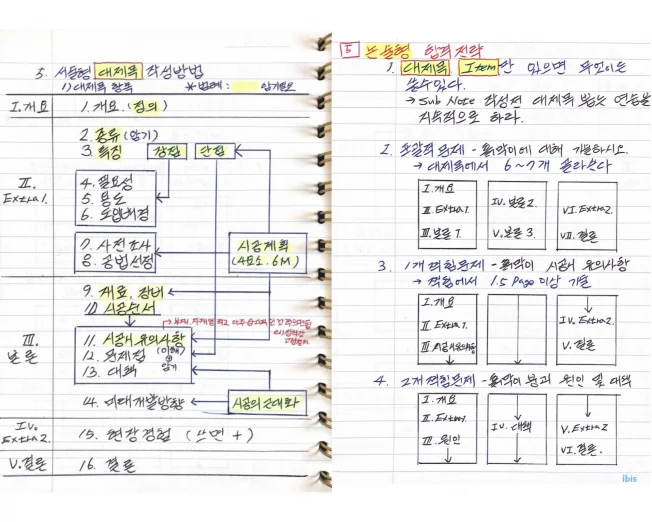 5. 서술형 대제목 작성방법
1) 대제목 항목 * 범례 : 암기필요
I. 개요
1. 개요. (정의)
II.
Extra1.
2. 종류 (암기)
3. 특징 장점 단점
4. 필요성
5. 용도
6. 도입배경
7. 사전조사
8. 공법선정
시공계획
(4요소. 6M)
III.
본론
9. 재료, 장비
10. 시공순서
11. 시공시 유의사항
12. 문제점 (이해)
암기
13. 대책
14. 미래개발방향
시공의 근대화
IV.
Extra2.
15. 현장경험 (쓰면 +)
V. 결론
16. 결론
5 논술형 합격전략
1. 대제목 Item만 있으면 무엇이든
쓸수있다.
→ Sub Note 작성전 대제목 뽑는 연습을
지속적으로 하라.
2. 포괄적 문제 - 흙막이에 대해 기술하시오.
→ 대제목에서 6~7개 골라쓴다
I. 개요
II. Extra1.
III. 본론1.
IV. 본론2.
V. 본론3.
VI. Extra2.
VII. 결론
3. 1개 적힘문제 - 흙막이 시공시 유의사항
→ 적힘에서 1.5 Page 이상 기술
I. 개요
II. Extra1.
III. 시공시유의사항
IV. Extra2.
V. 결론
4. 2개적힘문제 - 흙막이 붕괴 원인 및 대책
I. 개요
II. Extra1
III. 원인
IV. 대책
V. Extra2
VI. 결론.
ibis